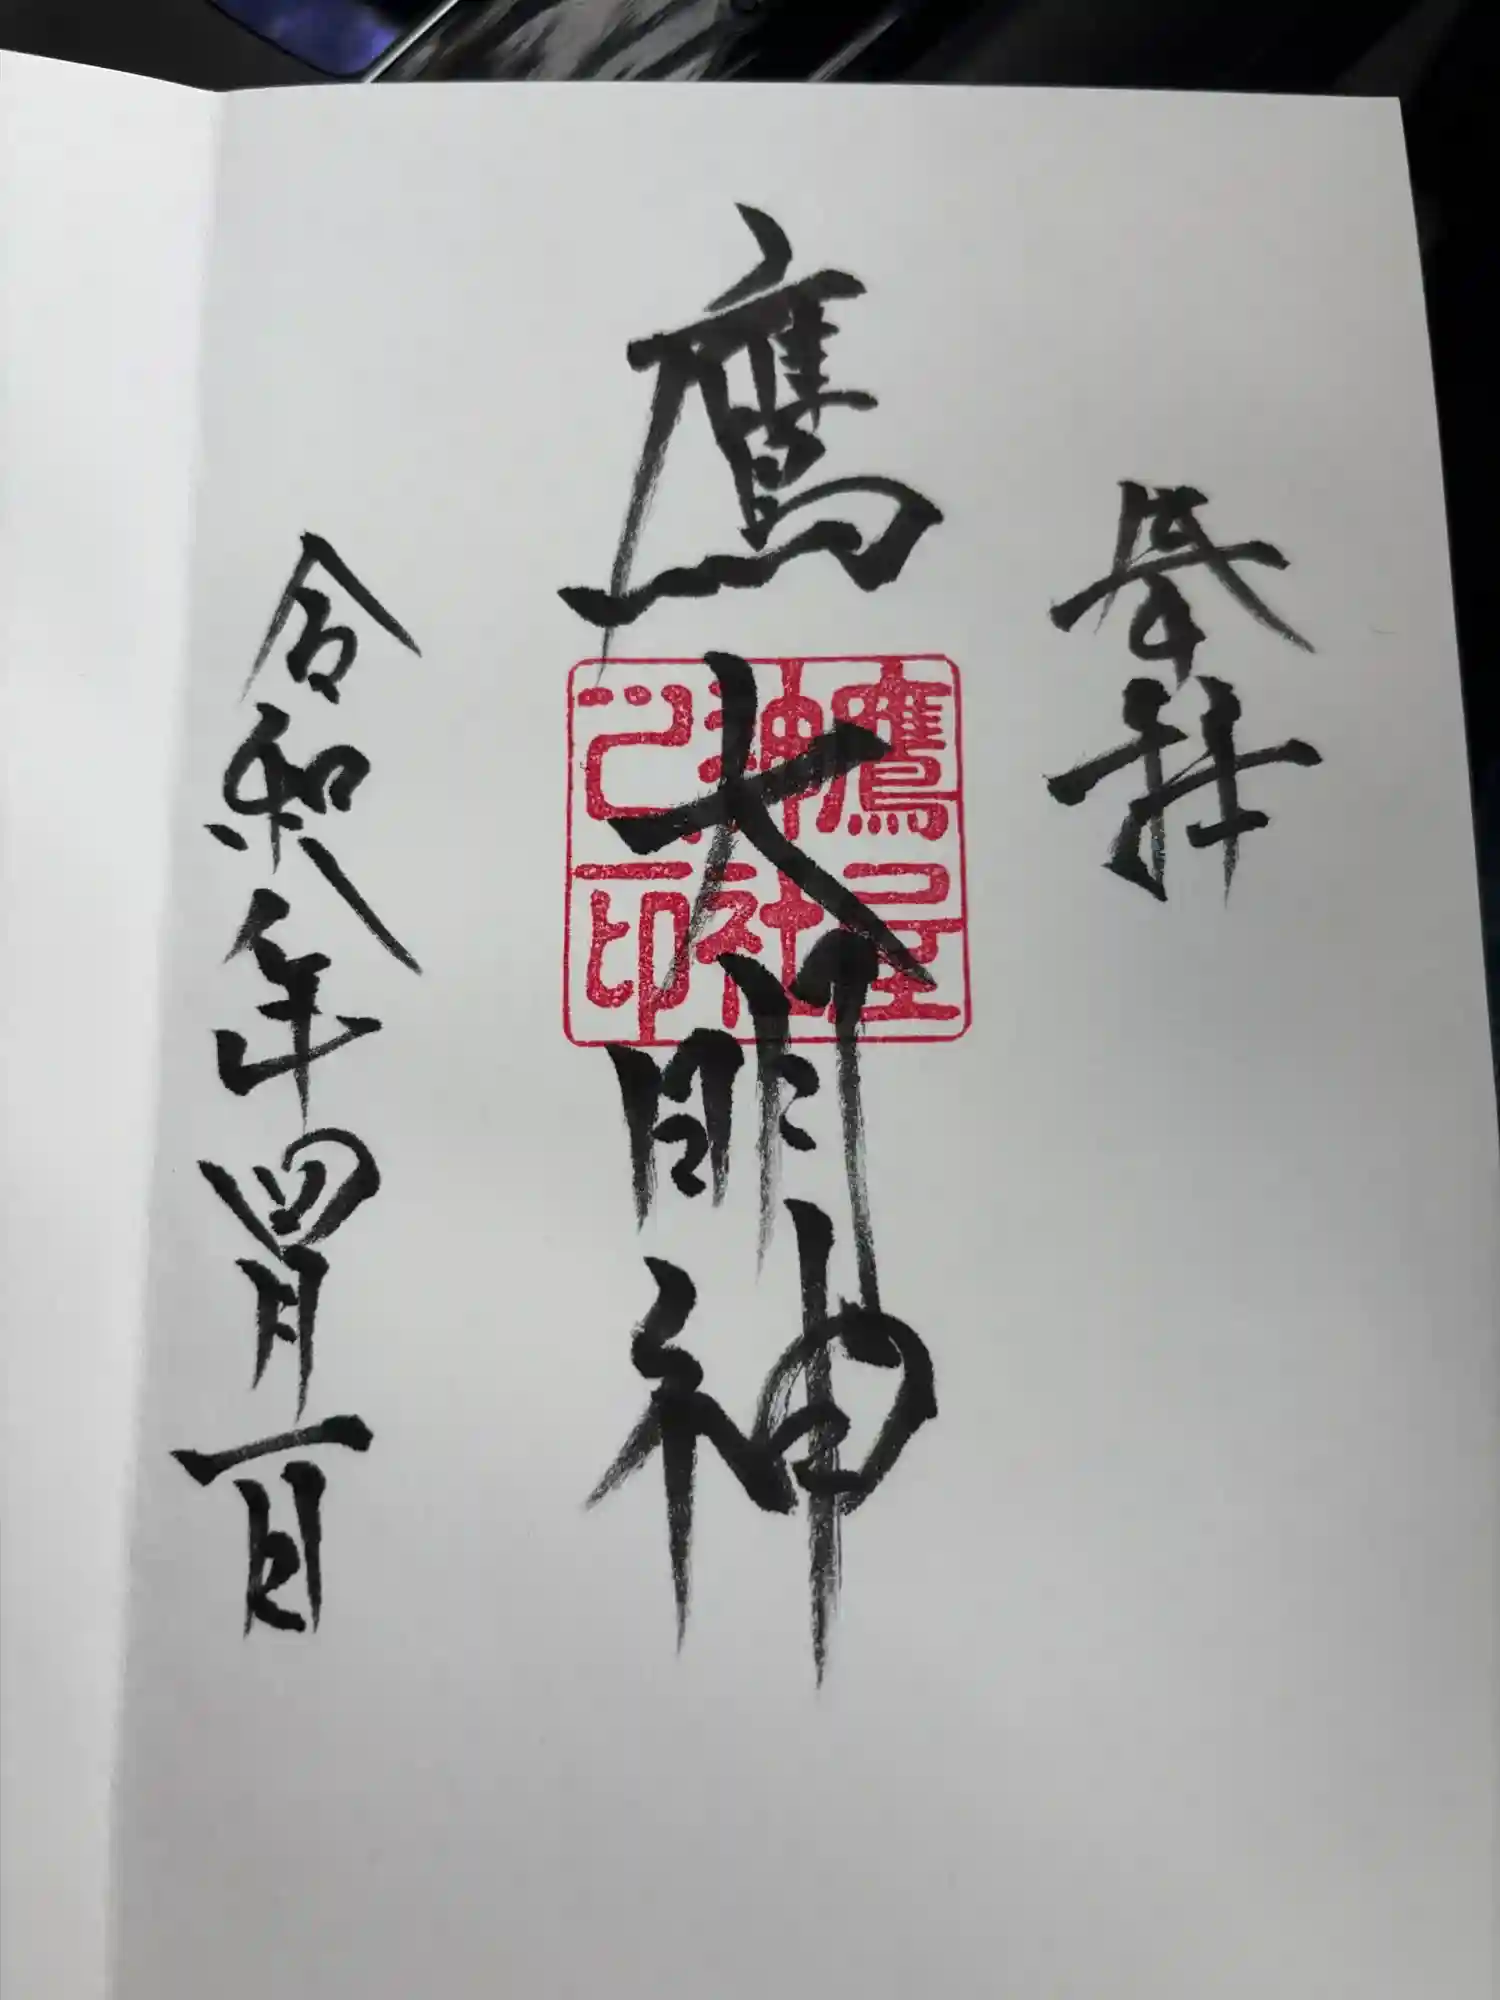 奉拝
鷹大明神
鷹屋
神社
之印
令和八年四月一日